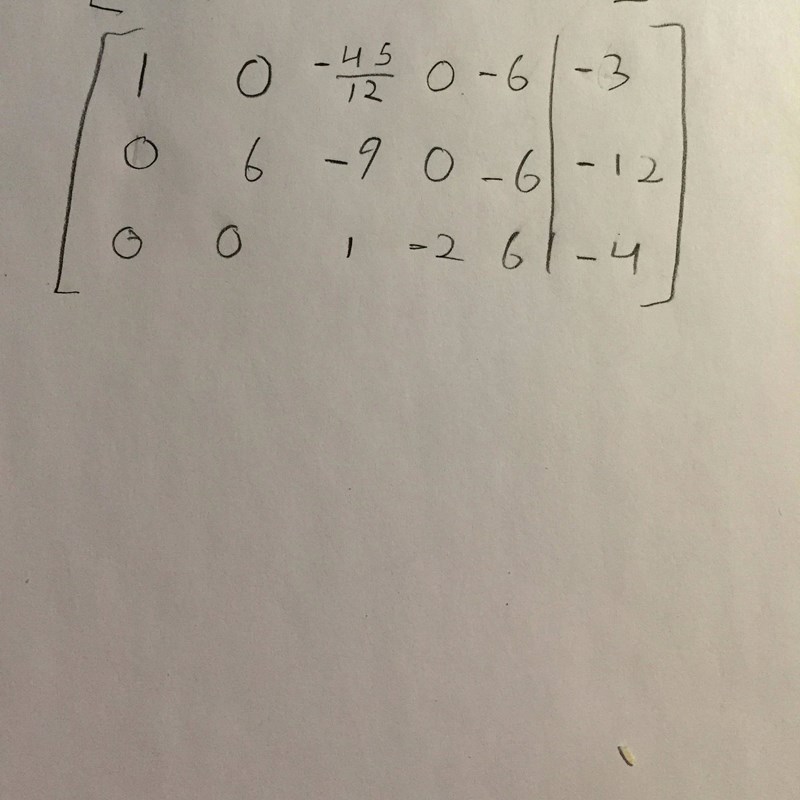 1 0 -45/12 0 -6 | -3
0 6 -9 0 -6 | -12
0 0 1 -2 6 | -4